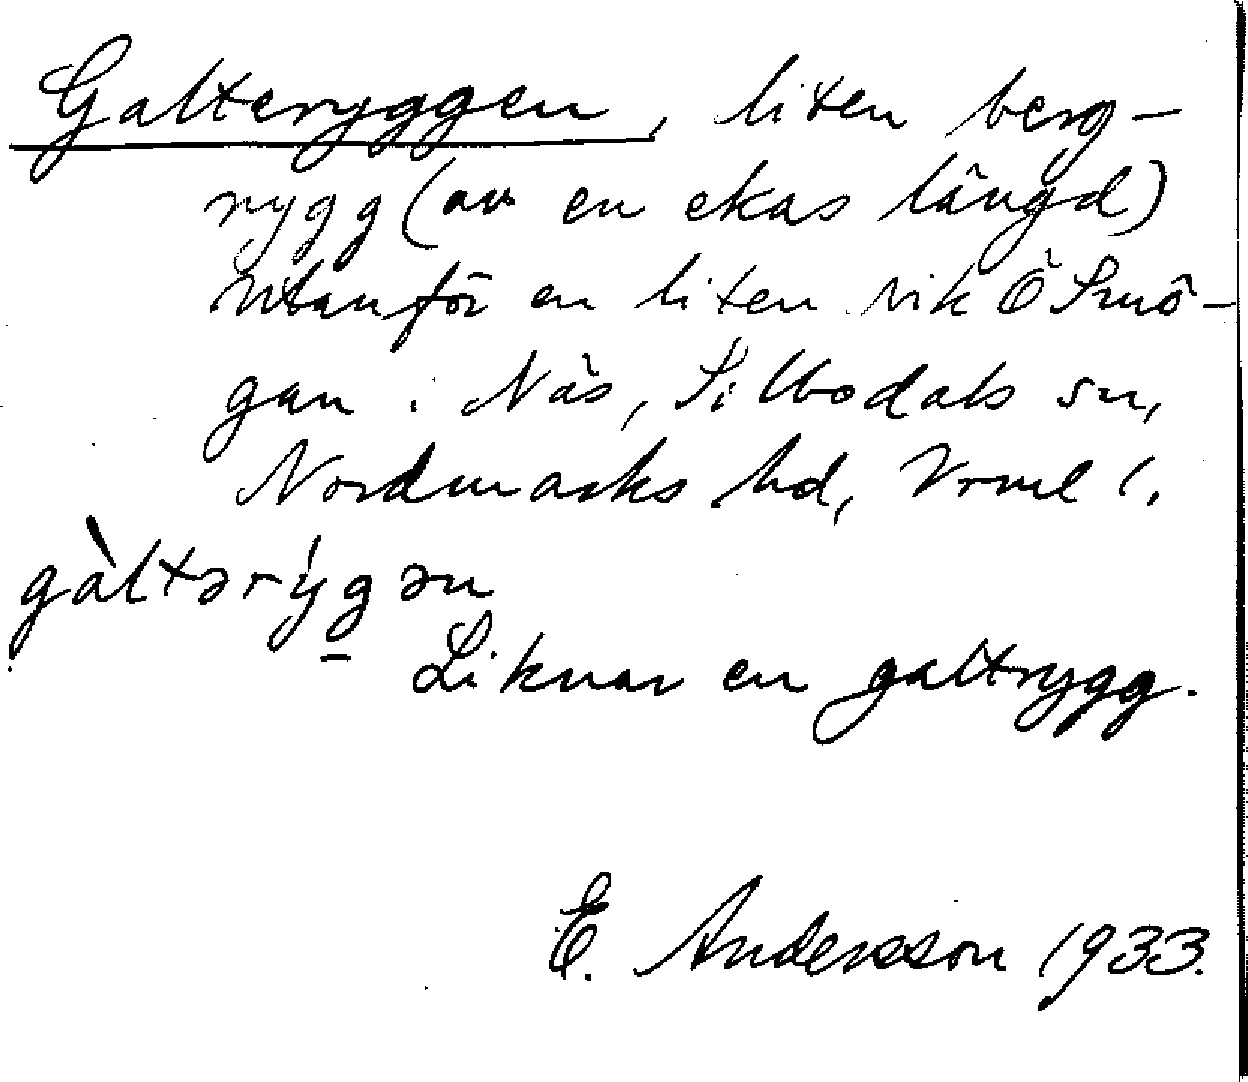 Galteryggen, liten berg-
rygg (av en ekas längd)
utanför en liten vik Ö Smö-
gan. Näs, Sillbodals sn,
Nordmarks hd, Vrml l.
gàltərýgən
Liknar en galtrygg.
E. Andersson 1933.